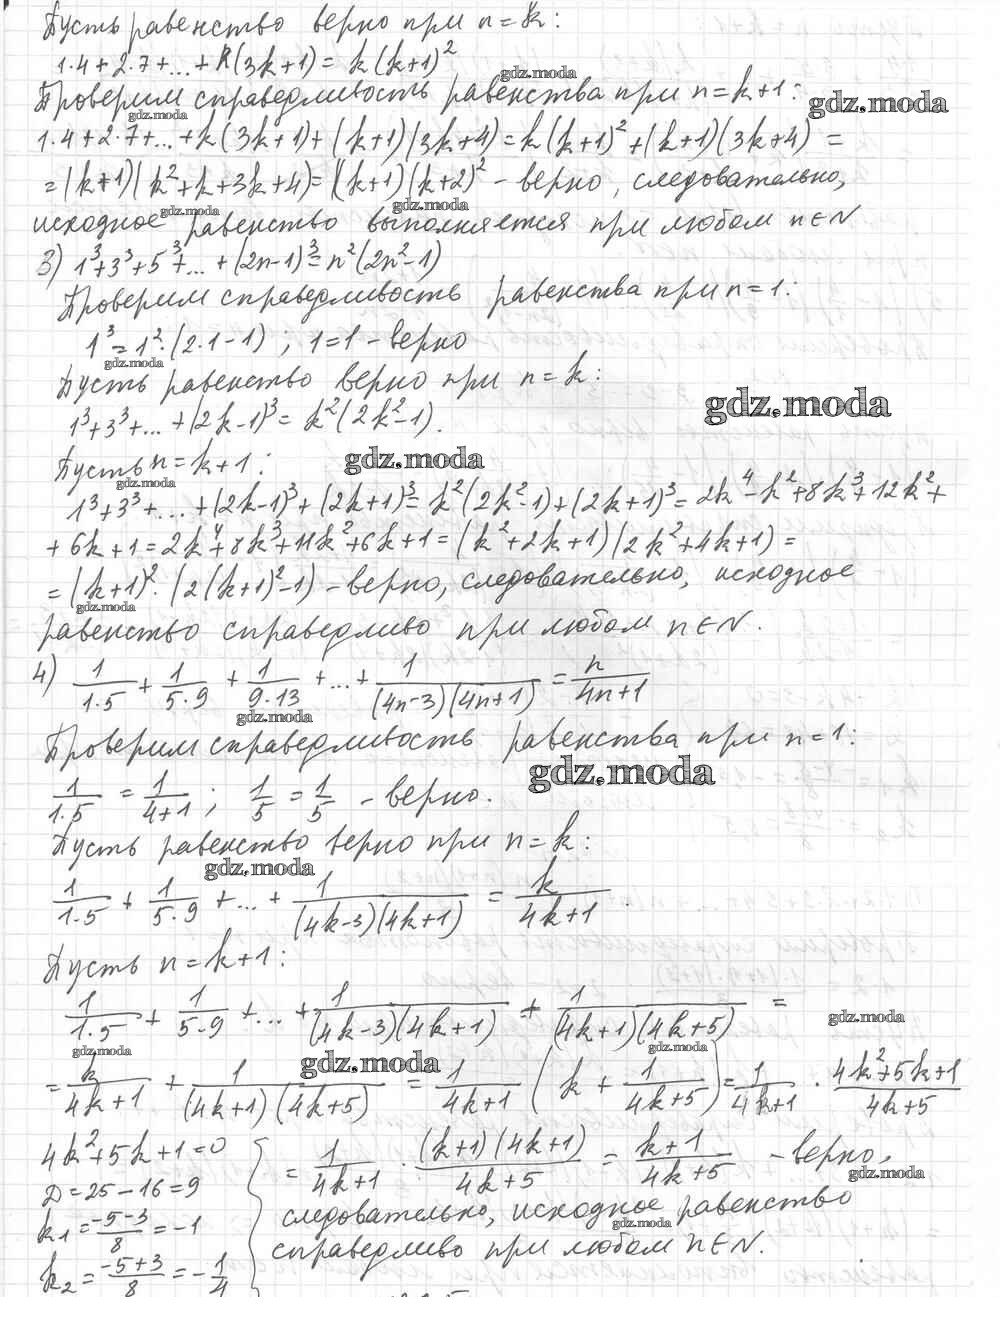 Пусть равенство верно при n=k:
1·4+2·7+...+k(3k+1)=k(k+1)²
gdz.moda
Проверим справедливость равенства при n=k+1:
gdz.moda
gdz.moda
1·4+2·7+...+k(3k+1)+(k+1)(3k+4)=k(k+1)²+(k+1)(3k+4)=
=(k+1)(k²+k+3k+4)=(k+1)(k+2)² - верно, следовательно,
gdz.moda gdz.moda
исходное равенство выполняется при любом n∈N
3) 1³+3³+5³+...+(2n-1)³=n²(2n²-1)
Проверим справедливость равенства при n=1:
1³=1²·(2·1-1); 1=1 - верно
gdz.moda
Пусть равенство верно при n=k:
gdz.moda
1³+3³+...+(2k-1)³=k²(2k²-1).
Пусть n=k+1:
gdz.moda
gdz.moda
1³+3³+...+(2k-1)³+(2k+1)³=k²(2k²-1)+(2k+1)³=2k⁴-k²+8k³+12k²+
+6k+1=2k⁴+8k³+11k²+6k+1=(k²+2k+1)(2k²+4k+1)=
=(k+1)²·(2(k+1)²-1) - верно, следовательно, исходное
gdz.moda
равенство справедливо при любом n∈N.
4) 1/(1·5)+1/(5·9)+1/(9·13)+...+1/((4n-3)(4n+1))=n/(4n+1)
gdz.moda
Проверим справедливость равенства при n=1:
gdz.moda
1/(1·5)=1/(4+1); 1/5=1/5 - верно.
Пусть равенство верно при n=k:
gdz.moda
1/(1·5)+1/(5·9)+...+1/((4k-3)(4k+1))=k/(4k+1).
Пусть n=k+1:
1/(1·5)+1/(5·9)+...+1/((4k-3)(4k+1))+1/((4k+1)(4k+5))=
gdz.moda
gdz.moda gdz.moda gdz.moda
=k/(4k+1)+1/((4k+1)(4k+5))=1/(4k+1)(k+1/(4k+5))=1/(4k+1)·(4k²+5k+1)/(4k+5)
4k²+5k+1=0
D=25-16=9
k₁=(-5-3)/8=-1
k₂=(-5+3)/8=-1/4
=1/(4k+1)·((k+1)(4k+1))/(4k+5)=(k+1)/(4k+5) - верно,
gdz.moda
следовательно, исходное равенство
gdz.moda
справедливо при любом n∈N.